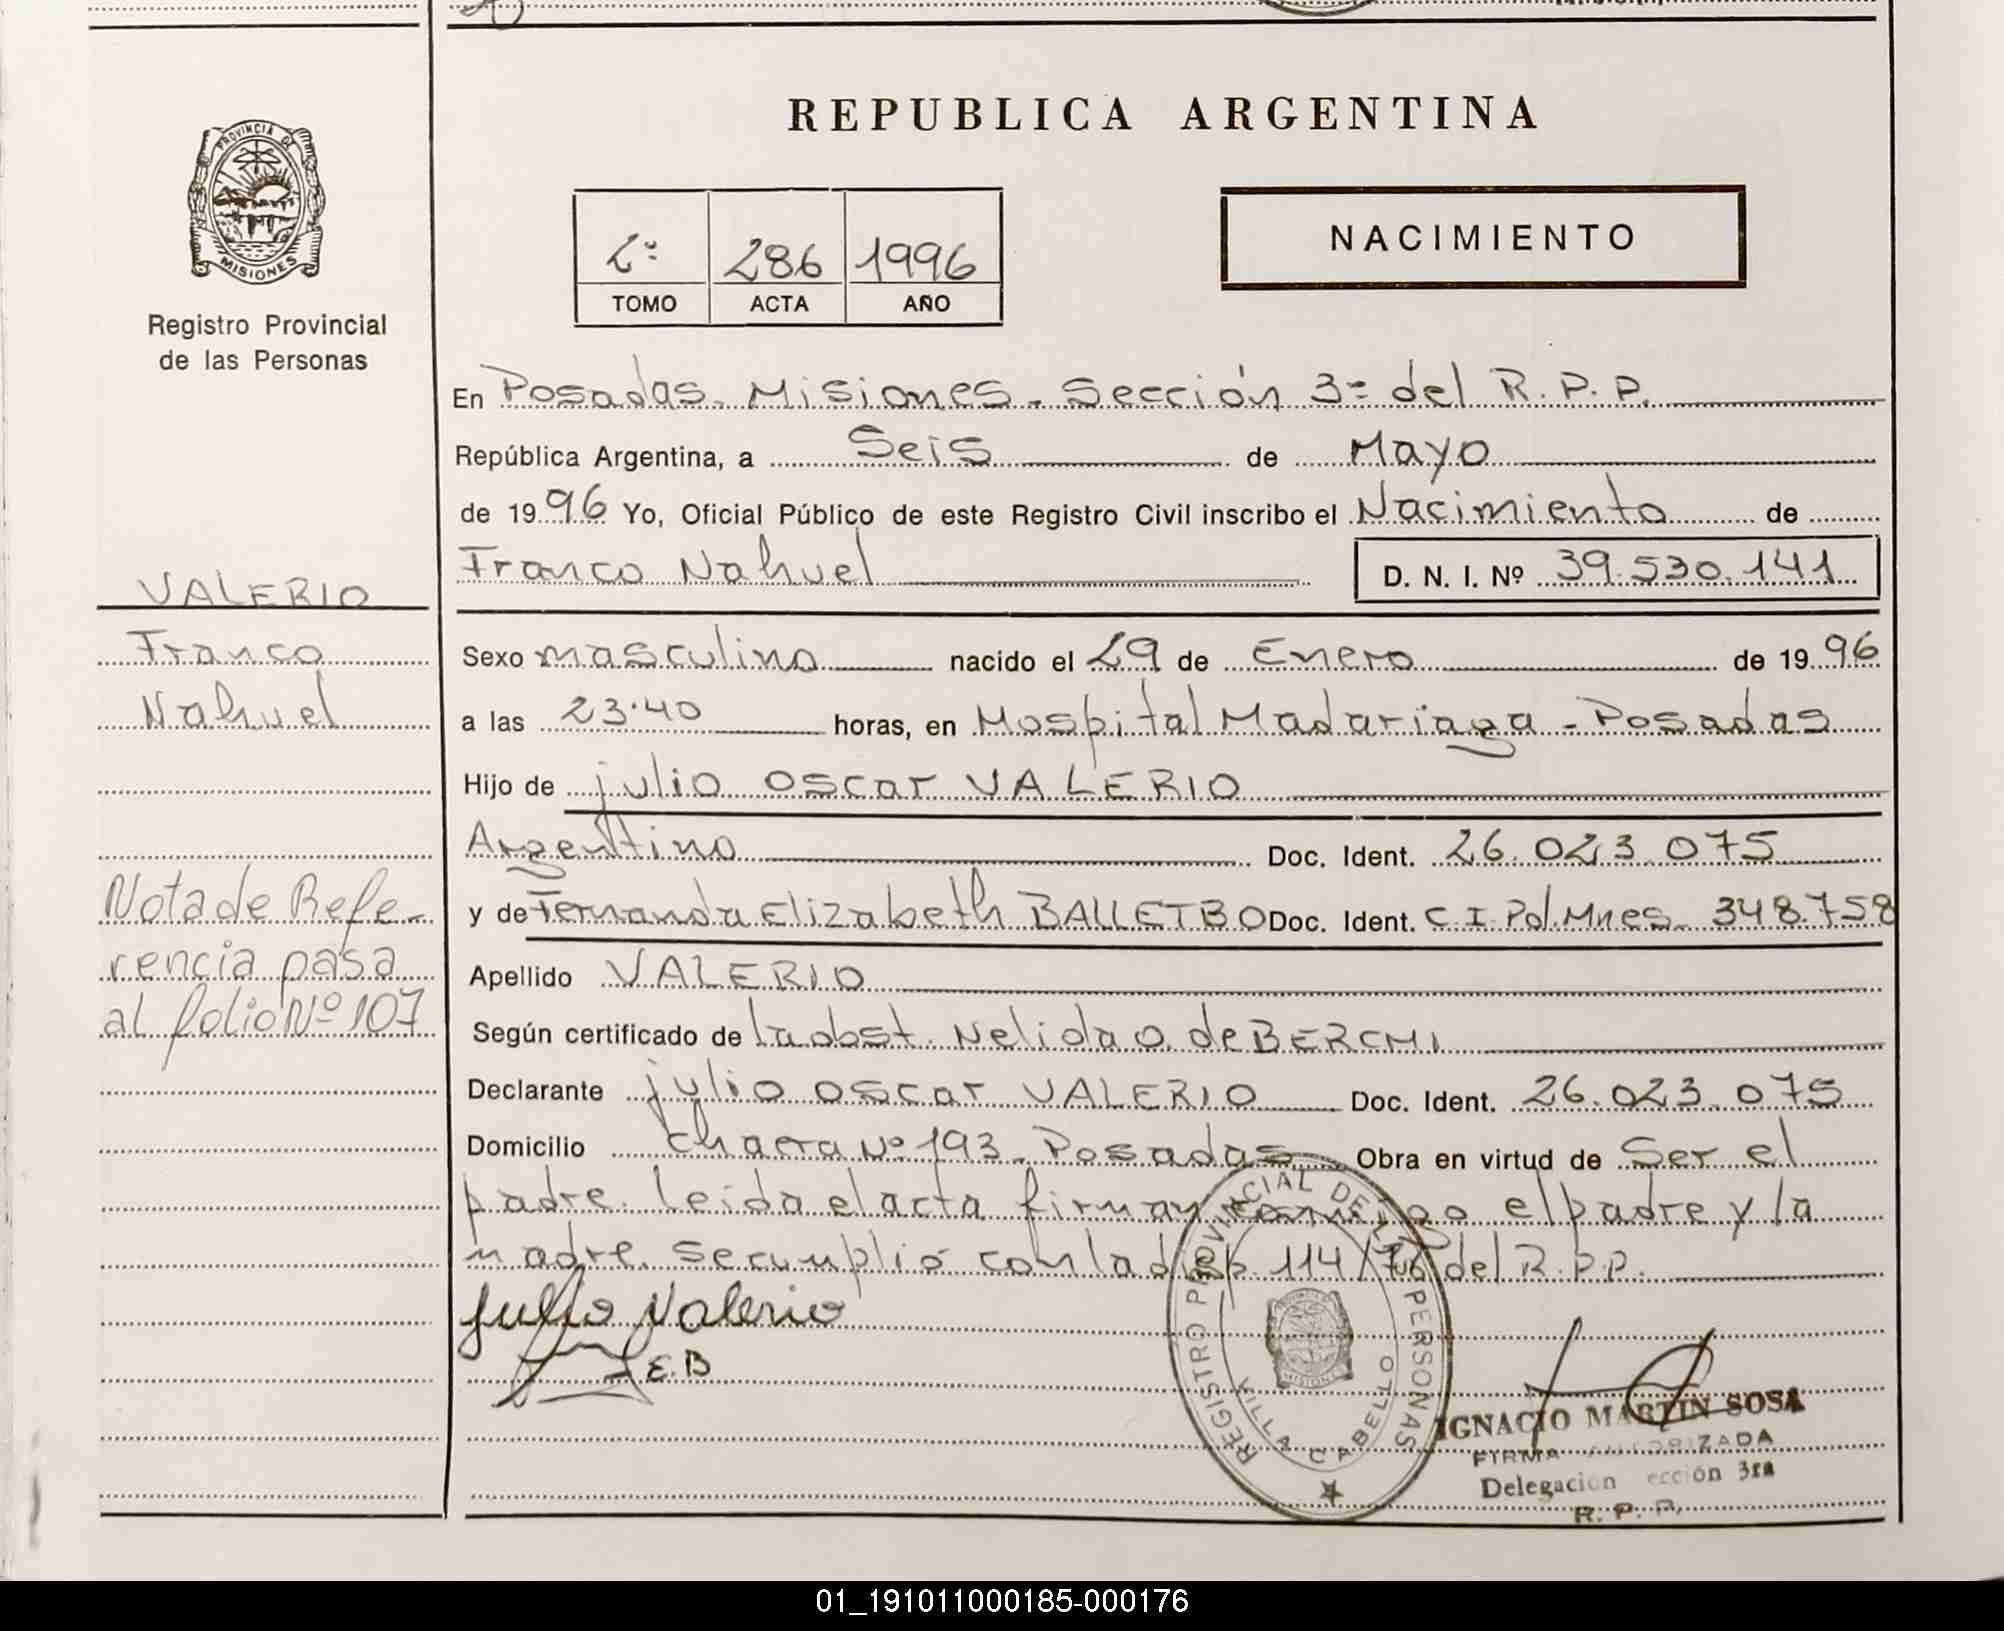 REPUBLICA ARGENTINA
PROVINCIA DE
MISIONES
Registro Provincial
de las Personas
2º 286 1996
TOMO ACTA AÑO
NACIMIENTO
En Posadas. Misiones. Sección 3= del R.P.P.
República Argentina, a Seis de Mayo
de 1996 Yo, Oficial Público de este Registro Civil inscribo el Nacimiento de
Franco Nahuel D. N. I. Nº 39.530.141
VALERIO
Franco
Nahuel
Sexo masculino nacido el 29 de Enero de 1996
a las 23.40 horas, en Hospital Madariaga - Posadas
Hijo de julio oscar VALERIO
Argentino Doc. Ident. 26.023.075
y de Fernanda Elizabeth BALLETBO Doc. Ident. C.I. Pol. Mnes. 348.758
Nota de Refe-
rencia pasa
al folio Nº 107
Apellido VALERIO
Según certificado de la obst. Nelida O. de BERCHI
Declarante julio oscar VALERIO Doc. Ident. 26.023.075
Domicilio chacra Nº 193. Posadas Obra en virtud de Ser el
padre. leida el acta firman conmigo el padre y la
madre. Se cumplió con la disp. 114/76 del R.P.P.
Julio Valerio
E.B
REGISTRO PROVINCIAL DE LAS PERSONAS
VILLA CABELLO
IGNACIO MARTIN SOSA
FIRMA AUTORIZADA
Delegación Sección 3ra
R. P. P.
01_191011000185-000176